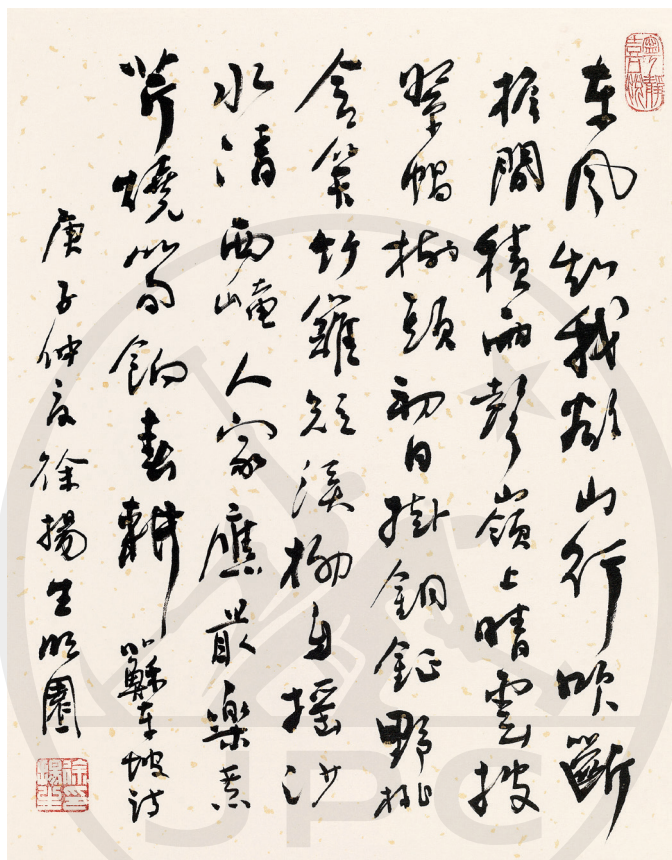 東風知我欲山行吹斷
檐間積雨聲嶺上晴雲披
絮帽樹頭初日掛銅鉦野桃
含笑竹籬短溪柳自搖沙
水清西崦人家應最樂煮
芹燒筍餉春耕 蘇東坡詩
庚子仲夏徐揚生 園
寧靜喜悅
徐揚生印
JPC